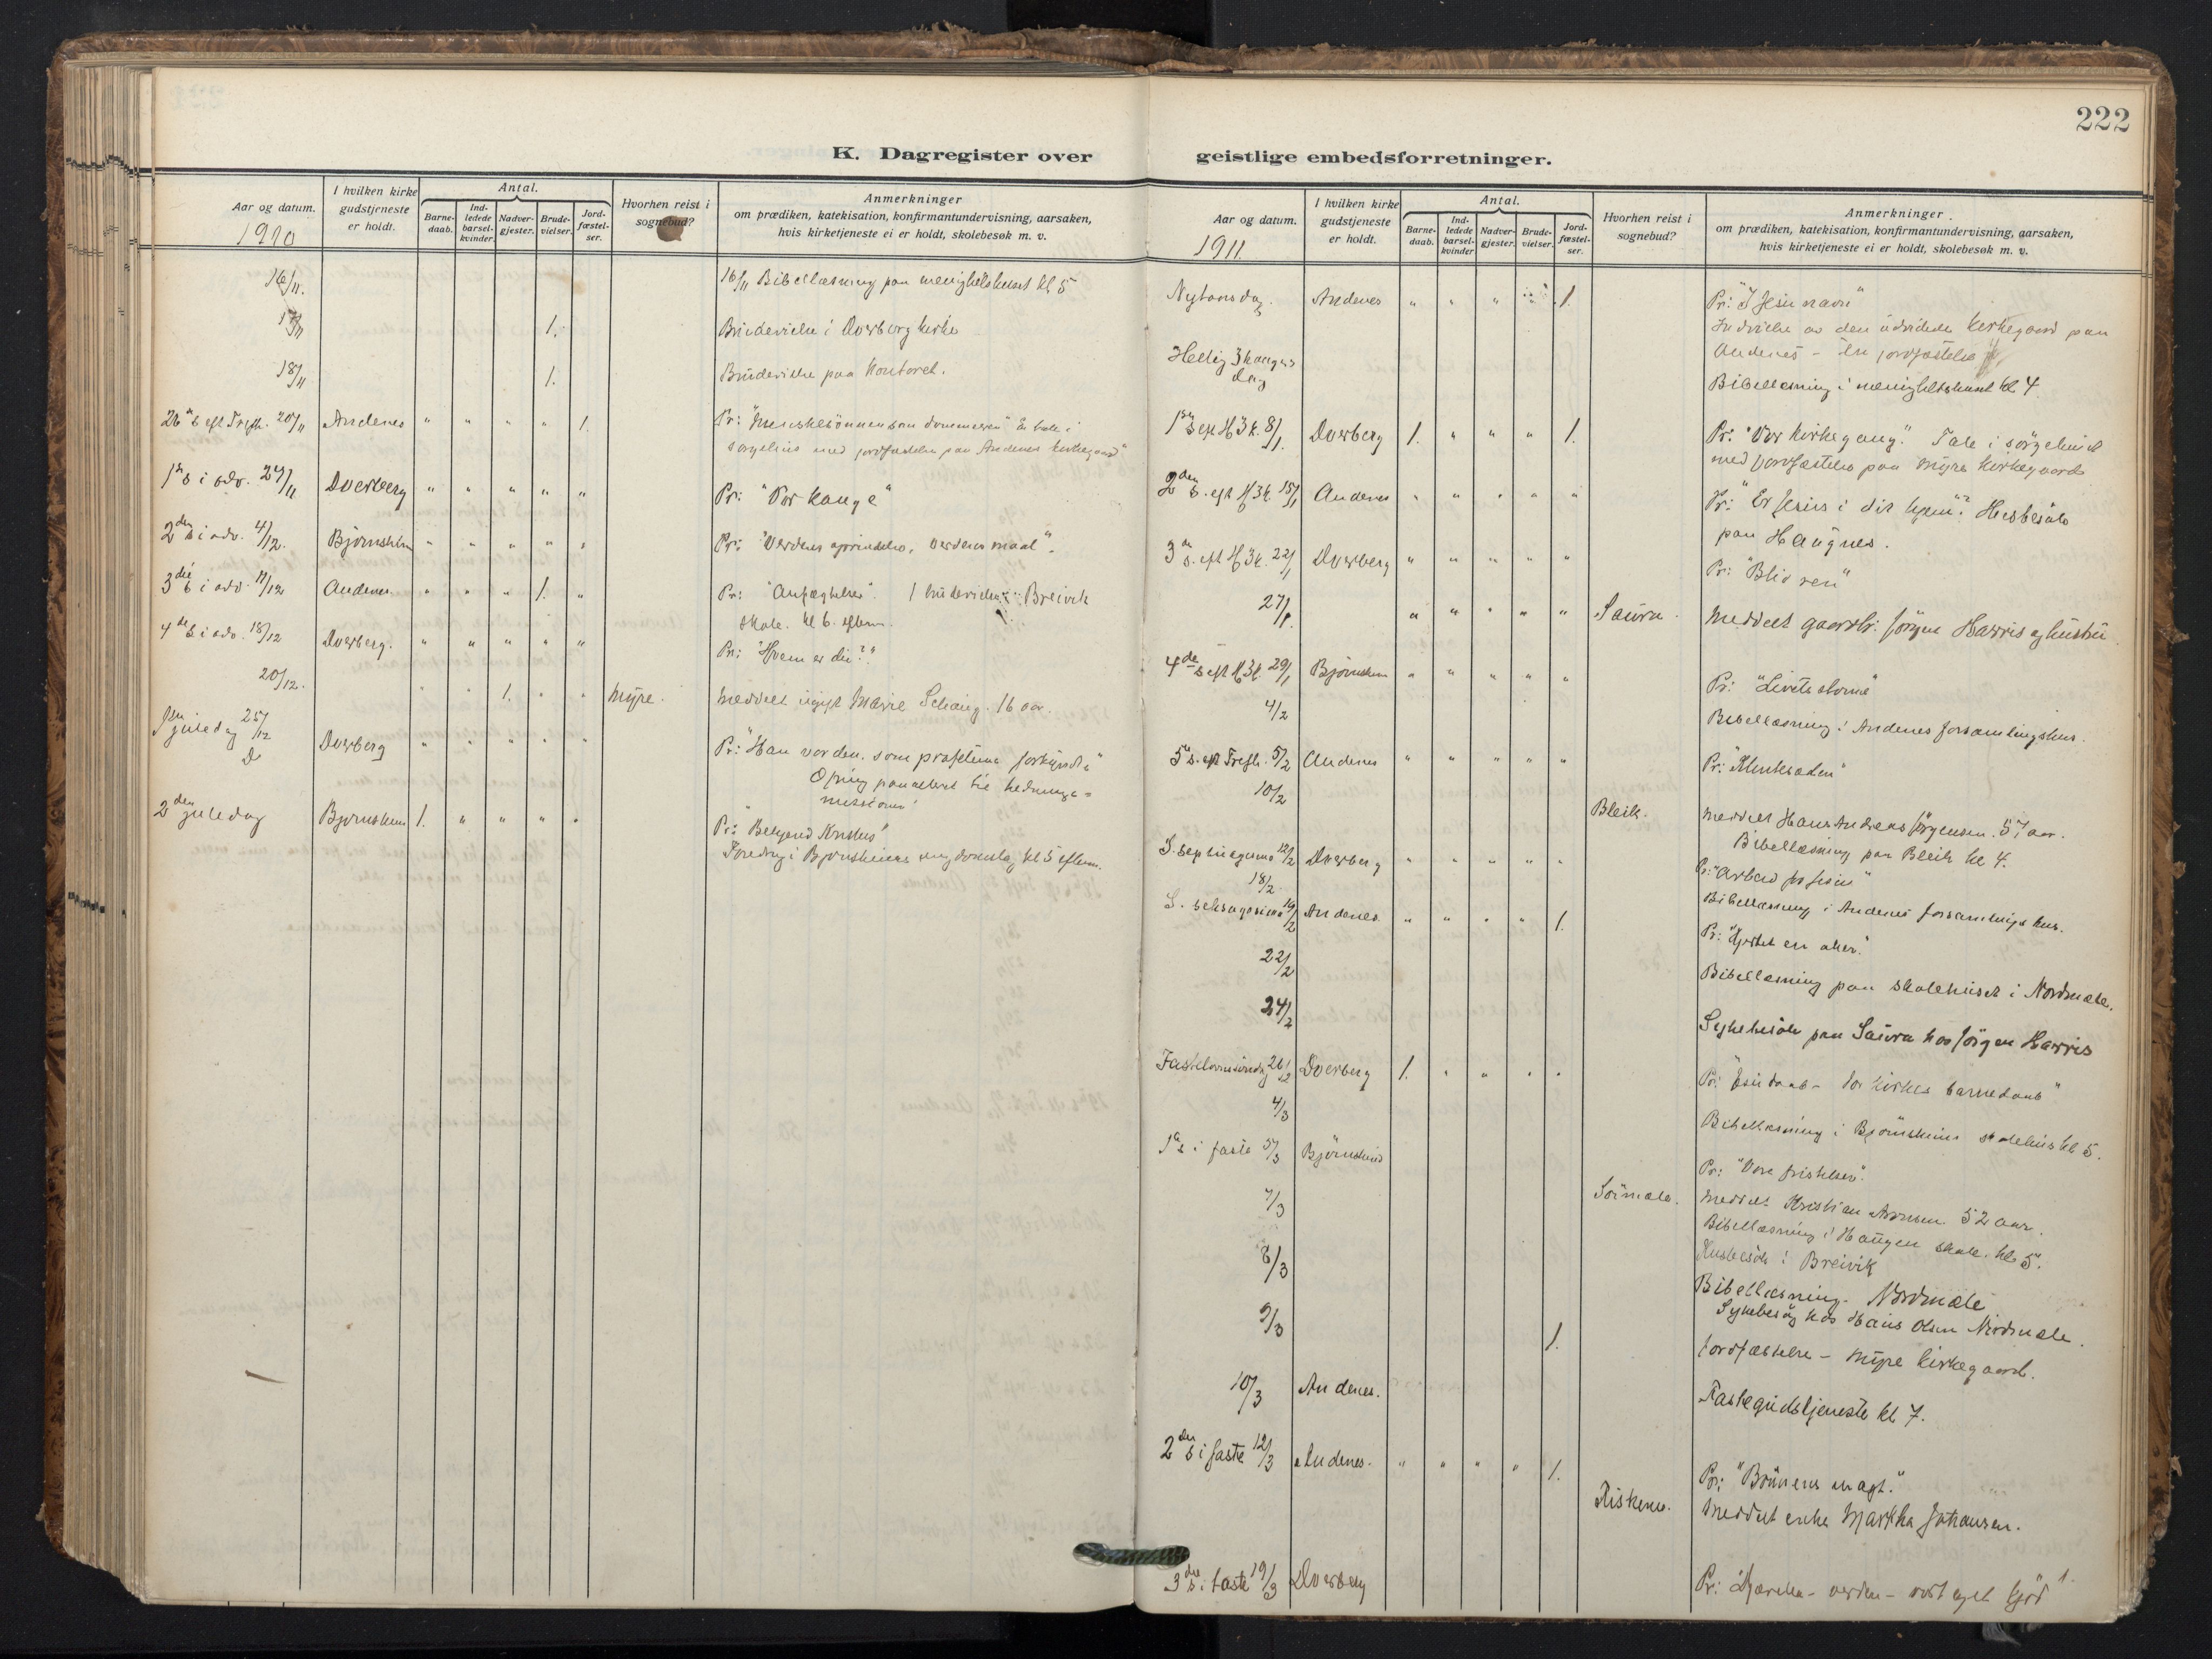 222
K. Dagregister over
geistlige embedsforretninger.
Aar og datum.
1910
I hvilken kirke
gudstjeneste
er holdt.
Antal.
Barne-
daab.
Ind-
ledede
barsel-
kvinder.
Nadver-
gjester.
Brude-
vielser.
Jord-
fæstel-
ser.
Hvorhen reist i
sognebud?
Anmerkninger
om prædiken, katekisation, konfirmantundervisning, aarsaken,
hvis kirketjeneste ei er holdt, skolebesøk m. v.
16/11. 16/11 Bibellæsning paa menighetshuset kl 5
17/11 1. Brudevielse i Dverberg kirke
18/11 1. Brudevielse paa kontoret.
26 s eft Trefh. 20/11 Andenes " " " " 1. Pr: "Menskesønnen som dommeren" & tale i
sørgehus med jordfæstelse paa Andenes kirkegaard
1 s i adv. 27/11 Dverberg " " " " " Pr: "Vor konge"
2den s i adv. 4/12. Bjørnskin " " " " " Pr: "Verdens oprindelse, verdens maal".
3die s i adv. 11/12 Andenes " " " 1. " Pr: "Anfægtelser". 1 brudevielse Breivik
skole. kl 6. efterm.
4de s i adv. 18/12 Dverberg. " " " " " Pr: "Hvem er du?"
20/12. " " 1. " " Myre. Meddelt ugift Marie Schaug. 16 aar.
juledag 25/12 Dverberg " " " " " Pr: "Han vorden, som profeterne forkyndte"
Ofring paa alteret til hedninge=
missionen
2den juledag Bjørnskin 1. " " " " Pr: "Bekjend Kristus"
Foredrag i Bjørnskinns ungdomslag kl 5 efterm.
Aar og datum.
1911.
I hvilken kirke
gudstjeneste
er holdt.
Antal.
Barne-
daab.
Ind-
ledede
barsel-
kvinder
Nadver-
gjester.
Brude-
vielser.
Jord-
fæstel-
ser.
Hvorhen reist i
sognebud?
Anmerkninger.
om prædiken, katekisation, konfirmantundervisning, aarsaken,
hvis kirketjeneste ei er holdt, skolebesøk m. v.
Nytaarsdag. Andenes " " " " 1. Pr: "I Jesu navn"
Indvielse av den utvidede kirkegaard paa
Andenes - En jordfæstelse
Hellig 3 konger
dag Bibellæsning i menighetshuset kl 4.
1 s eft H3k. 8/1. Dverberg 1. " " " 1. Pr: "Vor kirkegang". Tale i sørgehuset
med jordfæstelse paa Myre kirkegaard
2den s. eft H3k. 15/1 Andenes " " " " " Pr: "Er Jesus i dit hjem?" Husbesøk
paa Haugnes.
3 s. eft H3k. 22/1 Dverberg " " " " " Pr: "Bliv ren"
27/1. " " " " " Saura. Meddelt gaardbr. Jørgen Harris og hustru
4de s eft H3k. 29/1 Bjørnskin " " " " " Pr: "Livets storme"
4/2 Bibellæsning i Andenes forsamlingshus.
5 s. eft Trefh. 5/2 Andenes " " " " " Pr: "Klinten"
10/2 Bleik. Meddelt Hans Andreas Jørgensen. 57 aar.
Bibellæsning paa Bleik kl 4.
S. septuagesima 12/2 Dverberg " " " " " Pr: "Arbeid for Jesus"
18/2. Bibellæsning i Andenes forsamlings hus.
S. seksagesima 19/2 Andenes " " " " 1. Pr: "Hjertet en aker."
22/2 Bibellæsning paa skolehuset i Nordmæle.
24/2 Sykebesøk paa Saura hos Jørgen Harris
Fastelavnssøndag 26/2 Dverberg 1. " " " " Pr: "Jesu daab - vor kirkes barnedaab"
4/3 Bibellæsning i Bjørnskinn skolehus kl 5.
1 s i faste 5/3 Bjørnskind Pr: "Vore fristelser".
7/3 Sørmæle. Meddelt Kristian Arntsen 52 aar.
Bibellæsning i Haugen skole. kl. 5.
8/3 Husbesøk i Breivik
Bibellæsning. Nordmæle
9/3 Sykebesøg hos Hans Olsen Nordmæle.
1. Jordfæstelse - Myre kirkegaard.
10/3 Andenes. Fastegudstjeneste kl 7.
2den s i faste 12/3 Andenes. " " " " 1. Pr: "Bønnens magt."
Fiskenes. Meddelt enke Martha Johansen.
3die s. i faste 19/3 Dverberg Pr: "Djævelen - verden - vort eget kjød". 1.